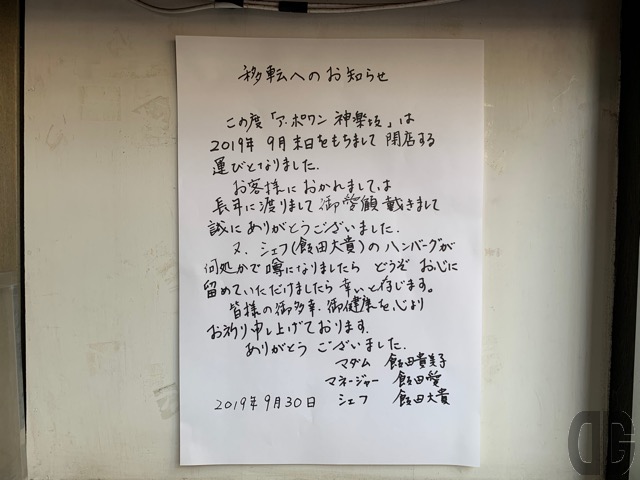 移転へのお知らせ
この度「ア・ポワン 神楽坂」は
2019年 9月末日をもちまして 閉店する
運びとなりました.
お客様におかれましては
長年に渡りまして御愛顧戴きまして
誠にありがとうございました.
又、シェフ(飯田大貴)のハンバーグが
何処かで噂になりましたら どうぞ お心に
留めていただけましたら幸いと存じます。
皆様の御多幸、御健康を心より
お祈り申し上げております.
ありがとう ございました.
マダム 飯田貴美子
マネージャー 飯田愛
2019年9月30日 シェフ 飯田大貴